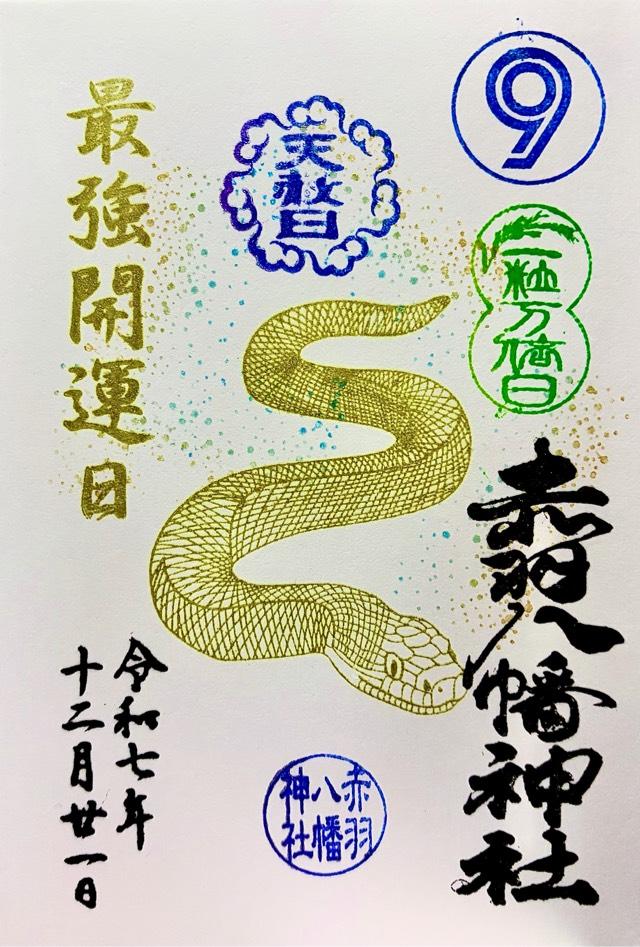 ⑨
一粒万倍日
赤羽八幡神社
天赦日
赤羽
八幡
神社
最強開運日
令和七年
十二月廿一日